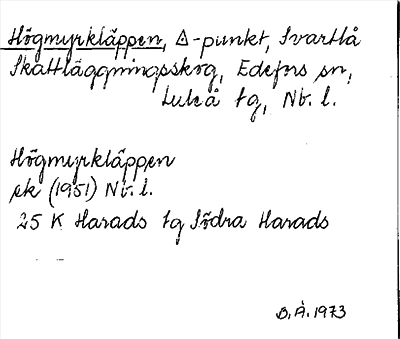 Högmyrkläppen, Δ-punkt, Svartlå
Skattläggningsskog, Edefors sn,
Luleå tg, Nb. l.
Högmyrkläppen
ek (1951) Nb. l.
25 K Harads tg Södra Harads
B. Å. 1973